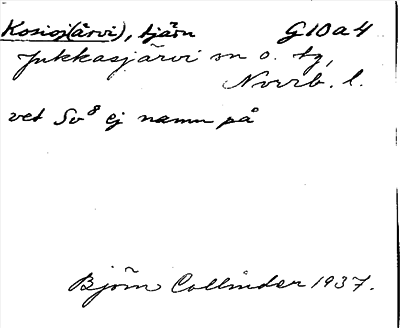 Kosioj(ärvi), tjärn G10a4
Jukkasjärvi sn o. tg,
Norrb. l.
vet Sv8 ej namn på
Björn Collinder 1937.